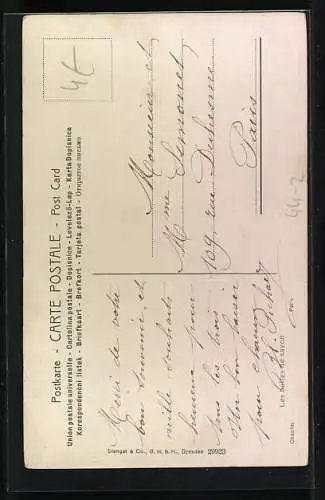 Postkarte - CARTE POSTALE - Post Card
Union postale universelle - Cartolina postale - Dopisnice - Levelező-Lap - Karta Dopisnica
Korespondenční lístek - Briefkaart - Brefkort - Tarjeta postal - Открытое письмо
4€
Monsieur et
Mme Simonet
109, rue Duhesme
Paris
44-2
Merci de votre
bon souvenir et
mille souhaits
pour
tous les trois
Un bon baiser
pour chacun
Les bulles de savon
Chaplin
Stengel & Co., G. m. b. H., Dresden 29923